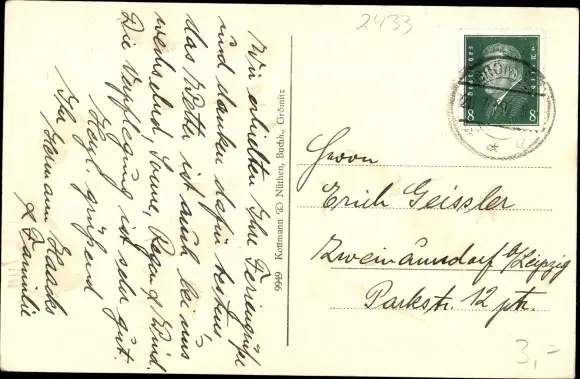 2433
Wir erhielten Ihre Feriengrüße
und danken dafür bestens,
das Wetter ist auch bei uns
wechselnd, Sonne, Regen & Wind.
Die Verpflegung ist sehr gut.
Herzl. grüßend
Ihr Hermann Haacks
& Familie
9949 Kottmann Nüthen, Buchh., Grömitz
Deutsches Reich
8 8
GRÖMITZ
Herrn
Erich Geissler
Zweinaundorf b/Leipzig
Parkstr. 12 ptr.
3,-